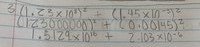 3) (1.23 x 10⁸)² + (1.45 x 10⁻³)²
(123000000)² + (0.00145)²
1.5129 x 10¹⁶ + 2.103 x 10⁻⁶